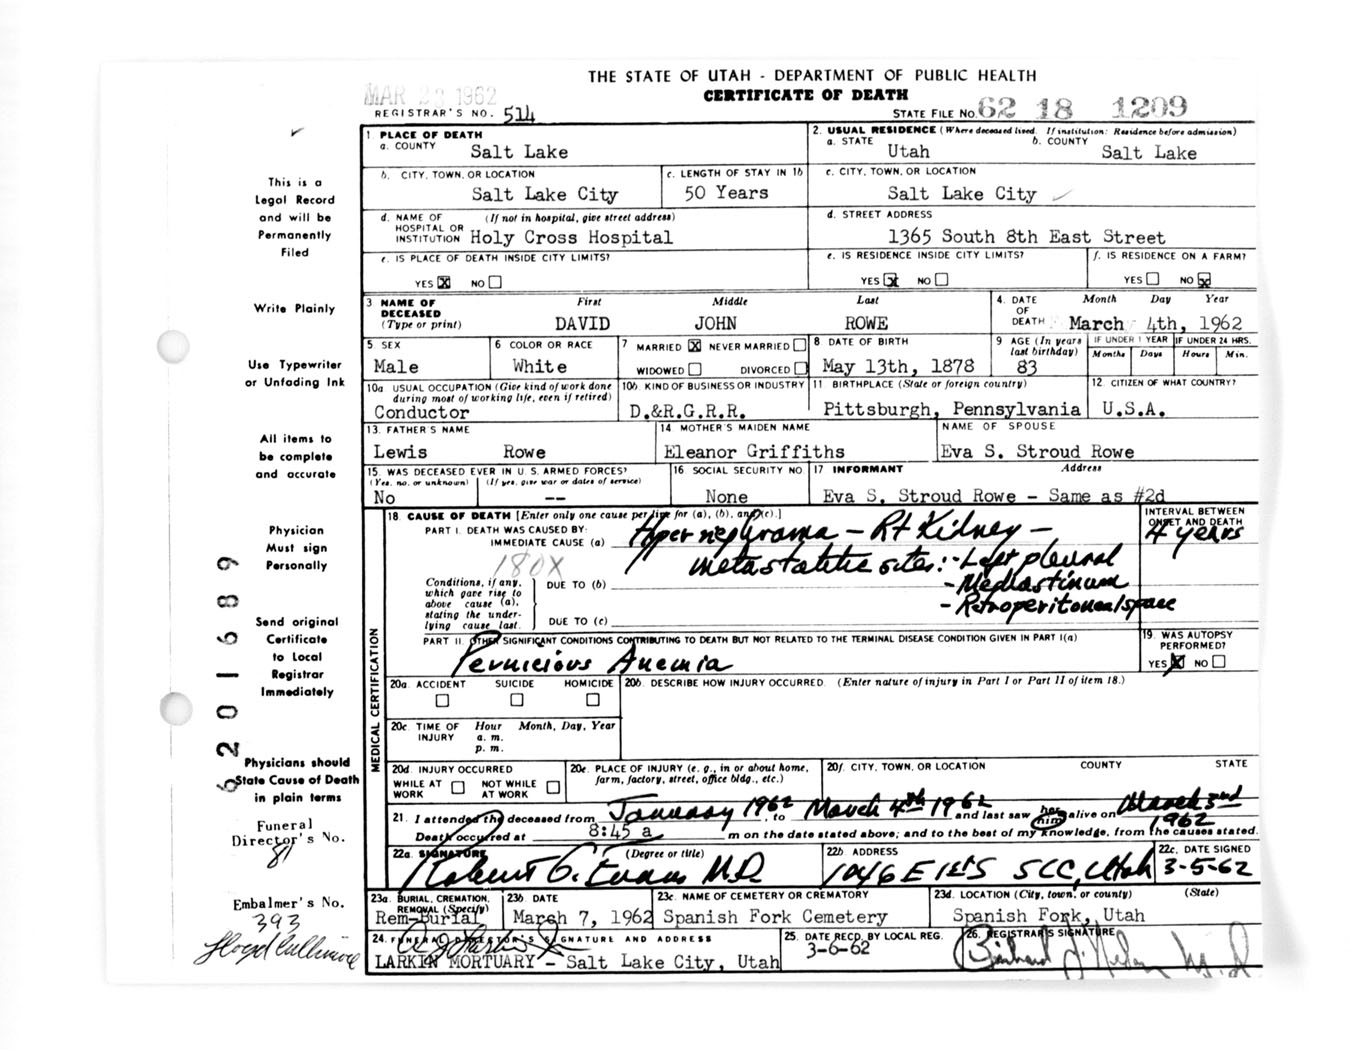 THE STATE OF UTAH - DEPARTMENT OF PUBLIC HEALTH
CERTIFICATE OF DEATH
MAR 23 1962
REGISTRAR'S NO. 514
STATE FILE NO. 62 18 1209
1. PLACE OF DEATH
a. COUNTY Salt Lake
2. USUAL RESIDENCE (Where deceased lived. If institution: Residence before admission)
a. STATE Utah b. COUNTY Salt Lake
b. CITY, TOWN, OR LOCATION Salt Lake City
c. LENGTH OF STAY IN 1b 50 Years
c. CITY, TOWN, OR LOCATION Salt Lake City
d. NAME OF HOSPITAL OR INSTITUTION (If not in hospital, give street address) Holy Cross Hospital
d. STREET ADDRESS 1365 South 8th East Street
e. IS PLACE OF DEATH INSIDE CITY LIMITS? YES X NO
e. IS RESIDENCE INSIDE CITY LIMITS? YES X NO
f. IS RESIDENCE ON A FARM? YES NO X
3 NAME OF DECEASED (Type or print) First DAVID Middle JOHN Last ROWE
4. DATE OF DEATH Month Day Year March 4th, 1962
5 SEX Male
6 COLOR OR RACE White
7 MARRIED X NEVER MARRIED WIDOWED DIVORCED
8 DATE OF BIRTH May 13th, 1878
9 AGE (In years last birthday) 83
IF UNDER 1 YEAR Months Days
IF UNDER 24 HRS. Hours Min.
10a USUAL OCCUPATION (Give kind of work done during most of working life, even if retired) Conductor
10b. KIND OF BUSINESS OR INDUSTRY D.&R.G.R.R.
11 BIRTHPLACE (State or foreign country) Pittsburgh, Pennsylvania
12. CITIZEN OF WHAT COUNTRY? U.S.A.
13. FATHER'S NAME Lewis Rowe
14 MOTHER'S MAIDEN NAME Eleanor Griffiths
NAME OF SPOUSE Eva S. Stroud Rowe
15. WAS DECEASED EVER IN U.S. ARMED FORCES? (Yes. no. or unknown) (If yes, give war or dates of service) No --
16 SOCIAL SECURITY NO None
17 INFORMANT Address Eva S. Stroud Rowe - Same as #2d
18. CAUSE OF DEATH [Enter only one cause per line for (a), (b), and (c).]
INTERVAL BETWEEN ONSET AND DEATH
PART I. DEATH WAS CAUSED BY:
IMMEDIATE CAUSE (a) Hypernephroma - Rt Kidney - 4 years
180X
metastatic sites: - Left pleural
Conditions, if any, which gave rise to above cause (a), stating the underlying cause last.
DUE TO (b) - Mediastinum
- Retroperitoneal space
DUE TO (c)
PART II. OTHER SIGNIFICANT CONDITIONS CONTRIBUTING TO DEATH BUT NOT RELATED TO THE TERMINAL DISEASE CONDITION GIVEN IN PART I(a)
Pernicious Anemia
19. WAS AUTOPSY PERFORMED? YES X NO
MEDICAL CERTIFICATION
20a. ACCIDENT SUICIDE HOMICIDE
20b. DESCRIBE HOW INJURY OCCURRED. (Enter nature of injury in Part I or Part II of item 18.)
20c. TIME OF INJURY Hour a. m. p. m. Month, Day, Year
20d. INJURY OCCURRED WHILE AT WORK NOT WHILE AT WORK
20e. PLACE OF INJURY (e. g., in or about home, farm, factory, street, office bldg., etc.)
20f. CITY, TOWN, OR LOCATION COUNTY STATE
21. I attended the deceased from January 1962, to March 4th 1962 and last saw her him alive on March 3rd 1962
Death occurred at 8:45 a m on the date stated above; and to the best of my knowledge, from the causes stated.
22a. SIGNATURE (Degree or title) Robert G. Evans M.D.
22b. ADDRESS 1046 E 1st S SLC, Utah
22c. DATE SIGNED 3-5-62
23a. BURIAL, CREMATION, REMOVAL (Specify) Rem-Burial
23b. DATE March 7, 1962
23c. NAME OF CEMETERY OR CREMATORY Spanish Fork Cemetery
23d. LOCATION (City, town, or county) (State) Spanish Fork, Utah
24. FUNERAL DIRECTOR'S SIGNATURE AND ADDRESS
LARKIN MORTUARY - Salt Lake City, Utah
25. DATE RECD. BY LOCAL REG. 3-6-62
26. REGISTRAR'S SIGNATURE
This is a
Legal Record
and will be
Permanently
Filed
Write Plainly
Use Typewriter
or Unfading Ink
All items to
be complete
and accurate
Physician
Must sign
Personally
Send original
Certificate
to Local
Registrar
Immediately
Physicians should
State Cause of Death
in plain terms
Funeral
Director's No.
81
Embalmer's No.
393
Lloyd Cullimore
6201689